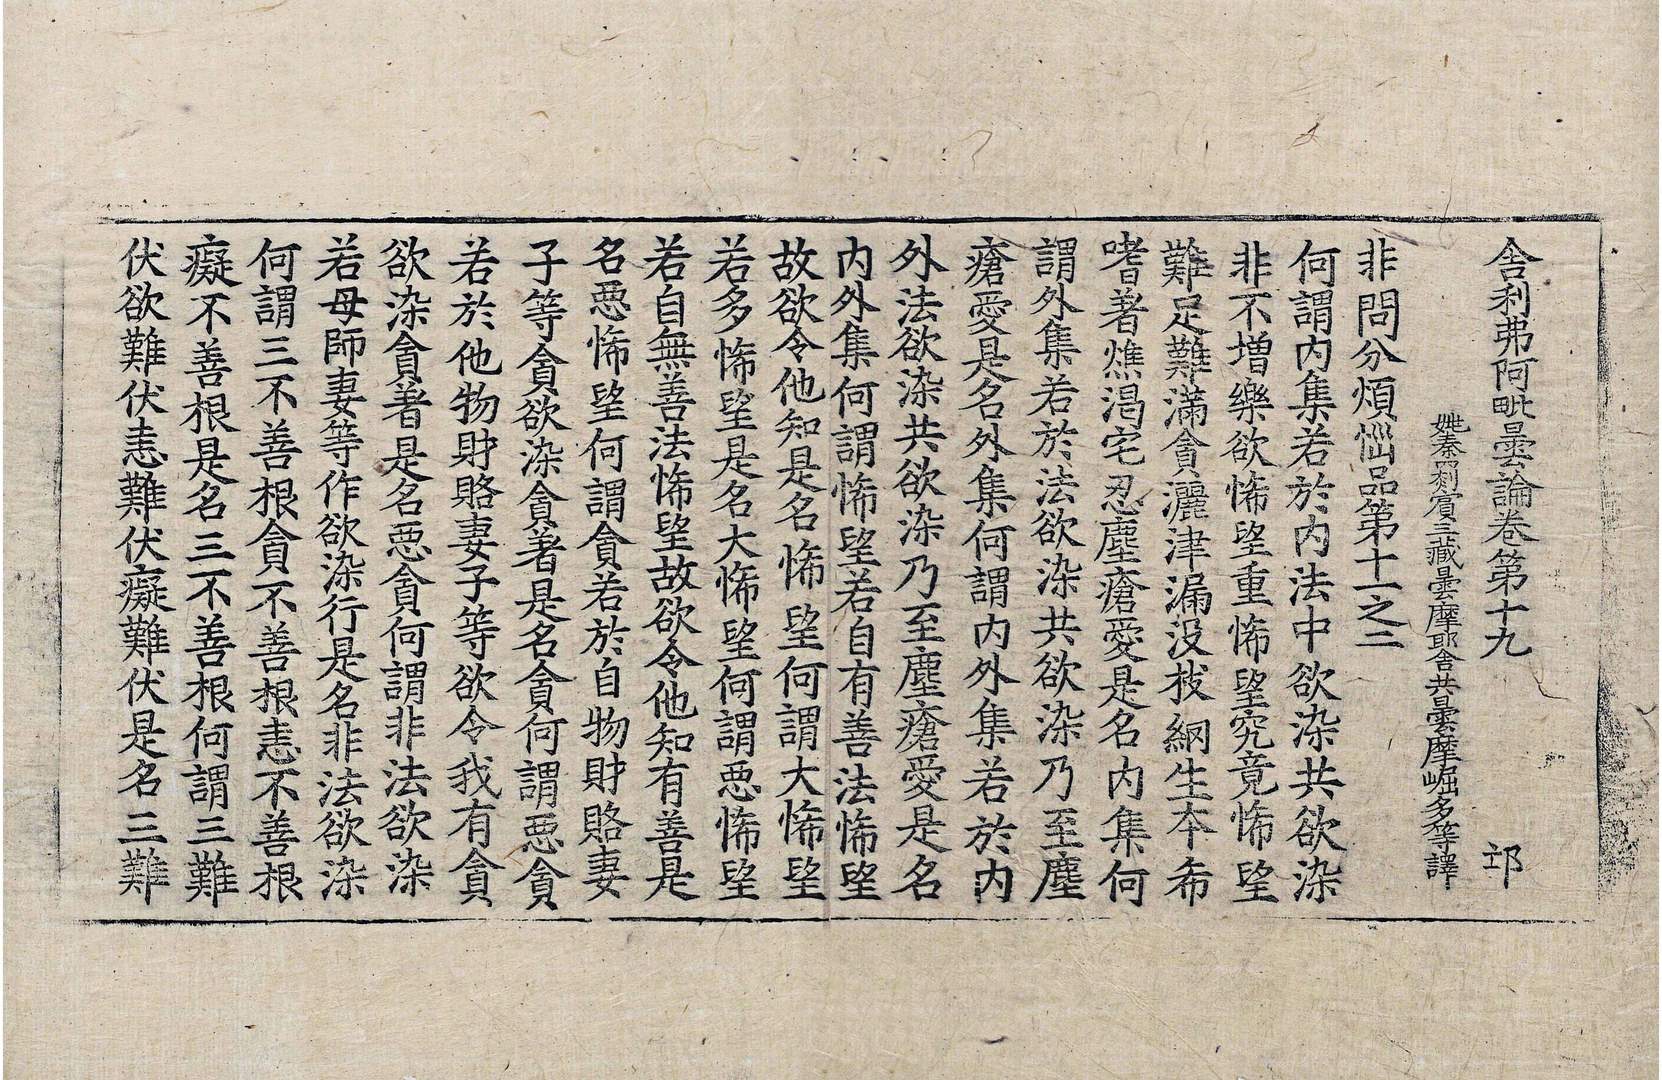 舍利弗阿毗曇論卷第十九 邛
姚秦罽賓三藏曇摩耶舍共曇摩崛多等譯
非問分煩惱品第十一之二
何謂內集若於內法中欲染共欲染
非不增樂欲悕望重悕望究竟悕望
難足難滿貪灑津漏没枝網生本希
嗜著燋渴宅忍塵瘡愛是名內集何
謂外集若於法欲染共欲染乃至塵
瘡愛是名外集何謂內外集若於內
外法欲染共欲染乃至塵瘡愛是名
內外集何謂悕望若自有善法悕望
故欲令他知是名悕望何謂大悕望
若多悕望是名大悕望何謂惡悕望
若自無善法悕望故欲令他知有善是
名惡悕望何謂貪若於自物財賂妻
子等貪欲染貪著是名貪何謂惡貪
若於他物財賂妻子等欲令我有貪
欲染貪著是名惡貪何謂非法欲染
若母師妻等作欲染行是名非法欲染
何謂三不善根貪不善根恚不善根
癡不善根是名三不善根何謂三難
伏欲難伏恚難伏癡難伏是名三難